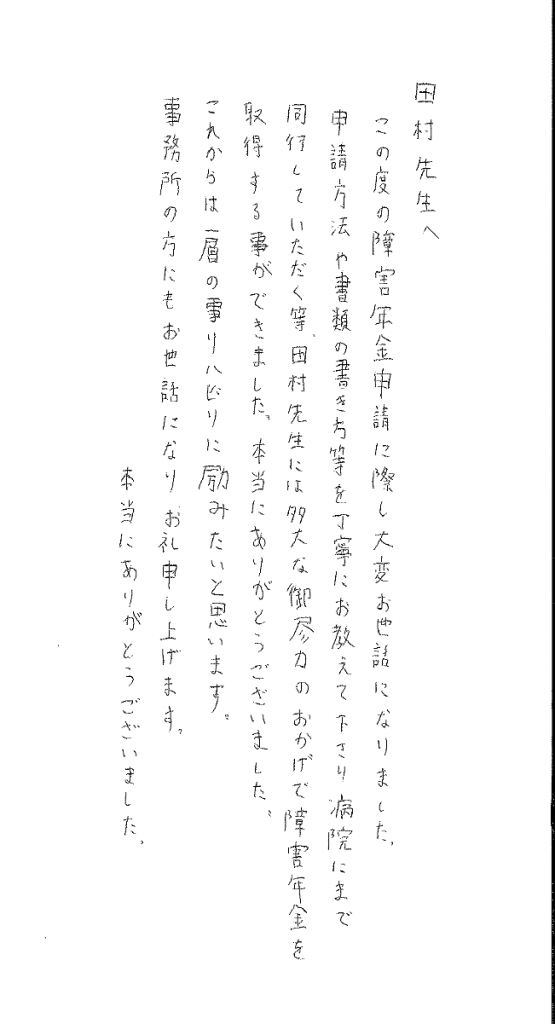 田村先生へ
この度の障害年金申請に際し大変お世話になりました。
申請方法や書類の書き方等を丁寧にお教えて下さり病院にまで
同行していただく等、田村先生には多大な御尽力のおかげで障害年金を
取得する事ができました。本当にありがとうございました。
これからは一層の事リハビリに励みたいと思います。
事務所の方にもお世話になりお礼申し上げます。
本当にありがとうございました。